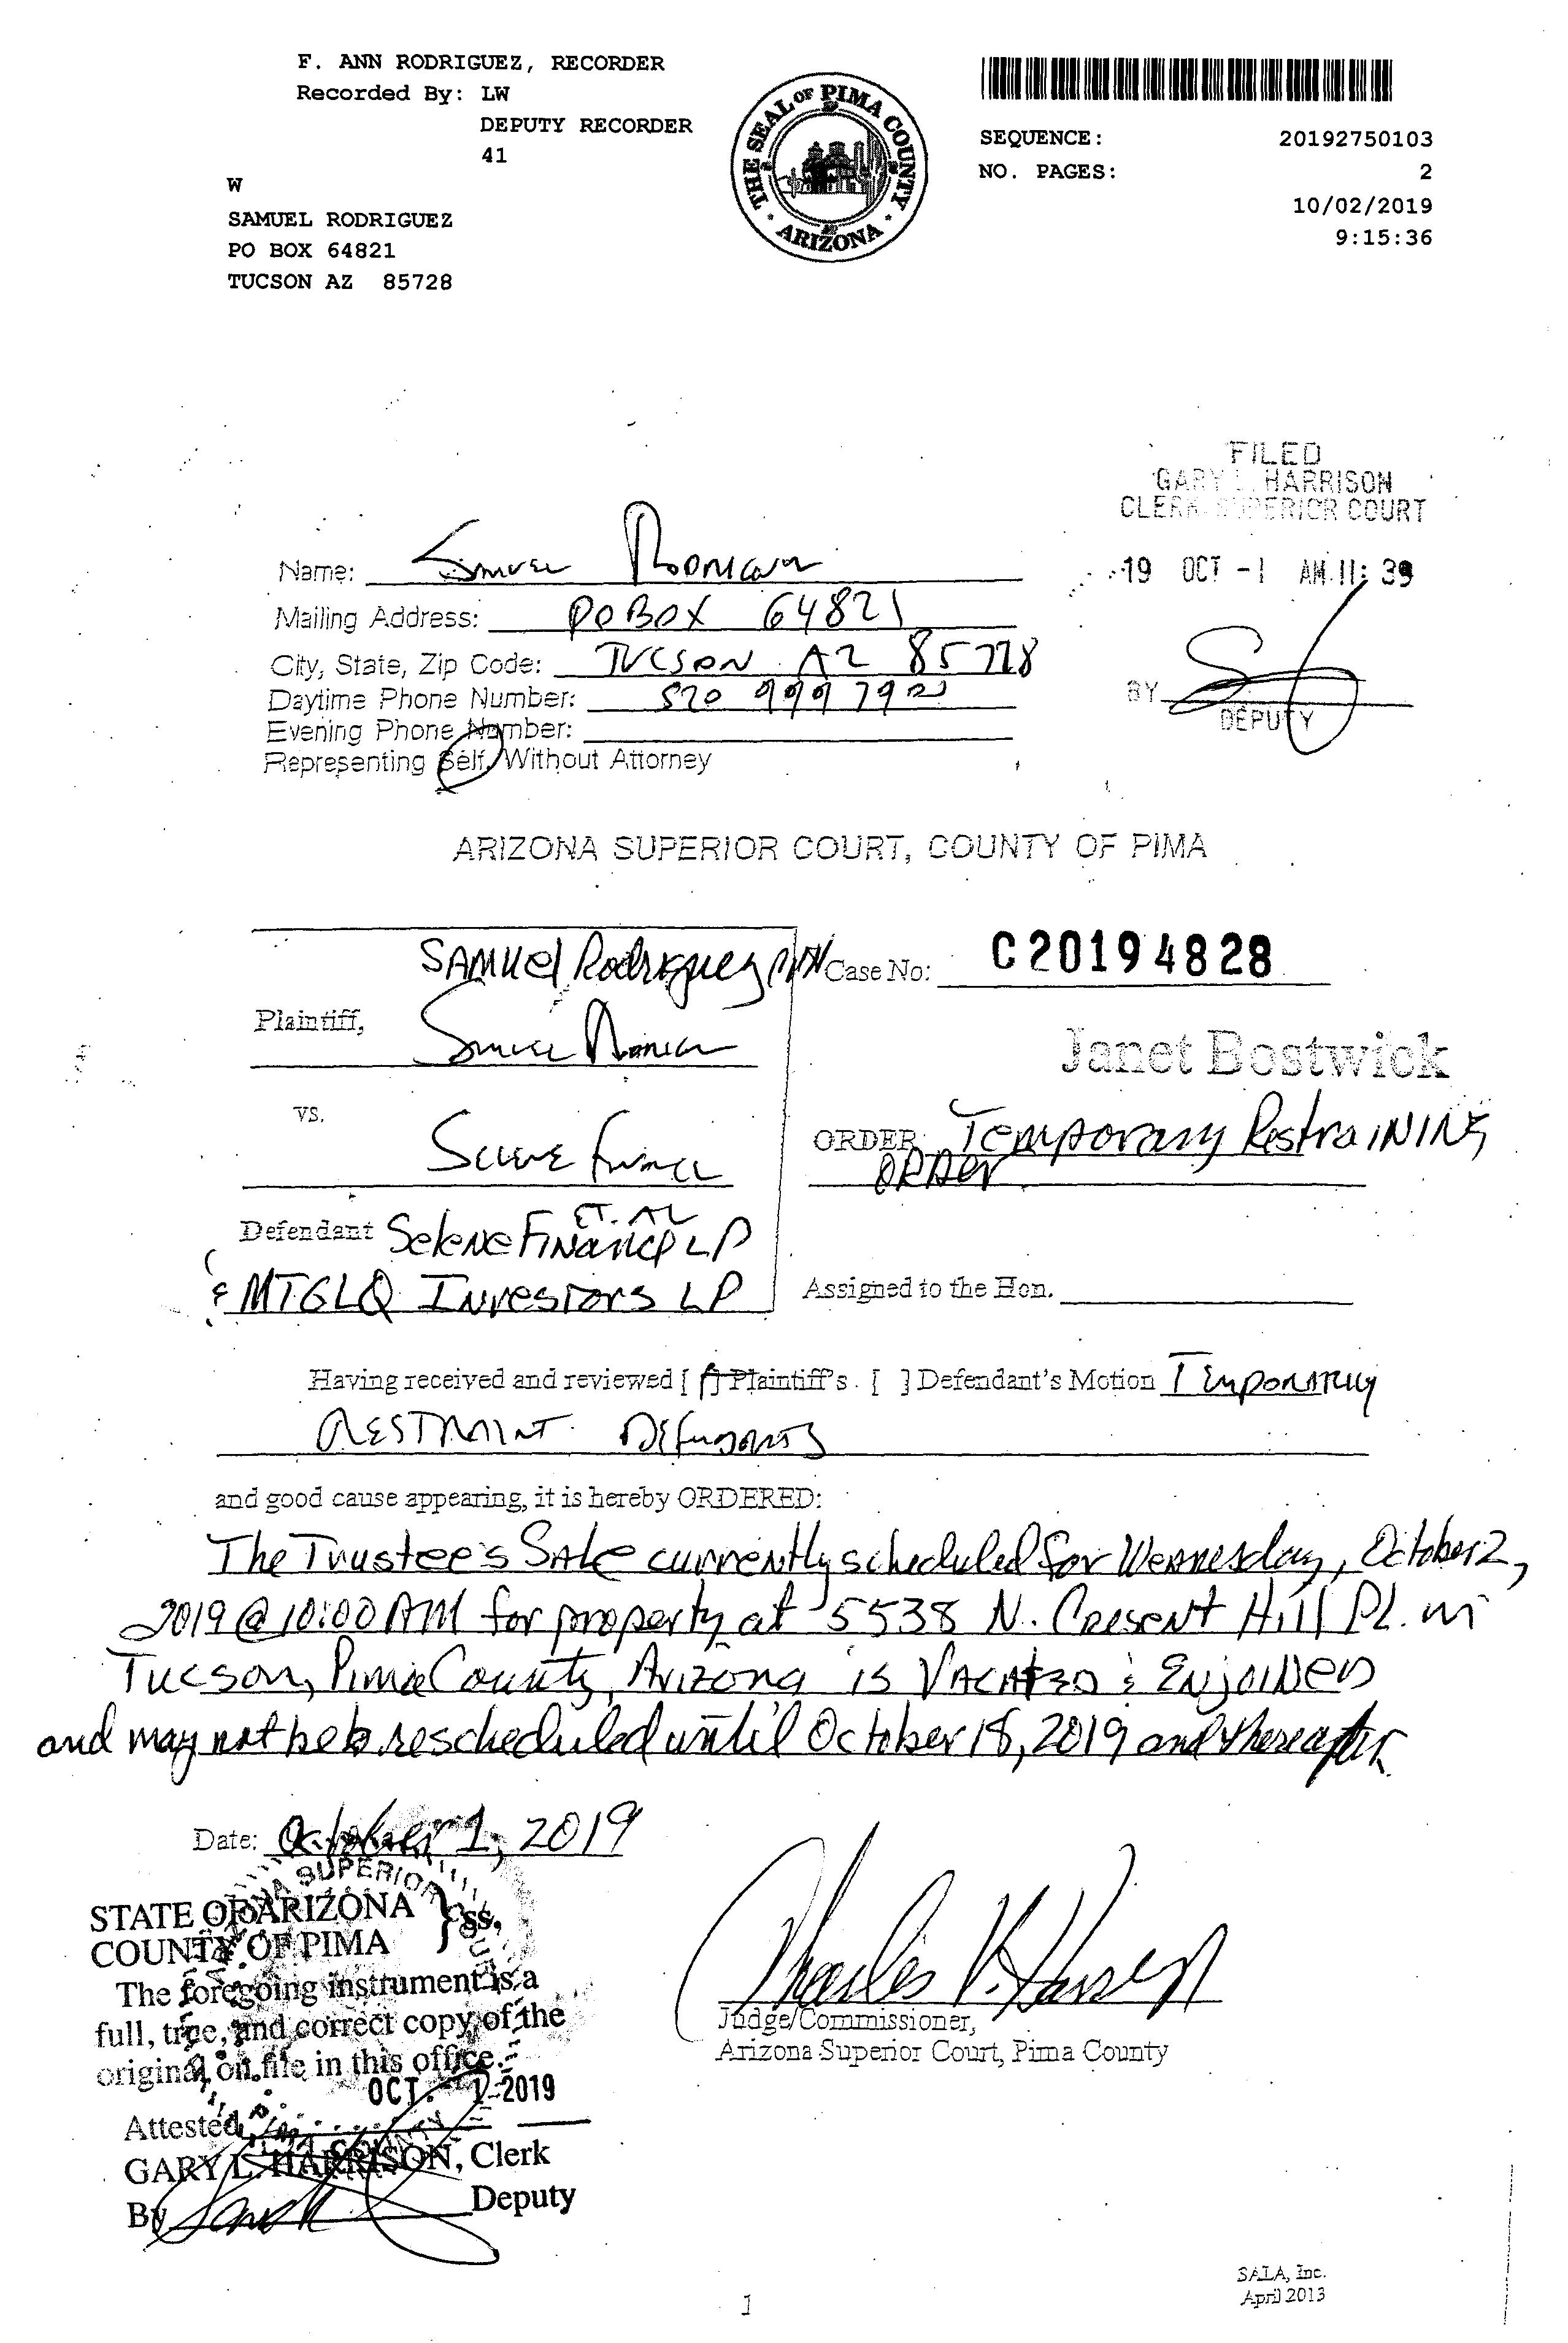 F. ANN RODRIGUEZ, RECORDER
Recorded By: LW
DEPUTY RECORDER
41
W
SAMUEL RODRIGUEZ
PO BOX 64821
TUCSON AZ 85728
THE SEAL OF PIMA COUNTY
ARIZONA
SEQUENCE: 20192750103
NO. PAGES: 2
10/02/2019
9:15:36
FILED
GARY L. HARRISON
CLERK SUPERIOR COURT
19 OCT -1 AM 11: 39
BY
DEPUTY
Name: Samuel
Mailing Address: PO BOX 64821
City, State, Zip Code: TUCSON AZ 85728
Daytime Phone Number: 520 999 7921
Evening Phone Number:
Representing Self, Without Attorney
ARIZONA SUPERIOR COURT, COUNTY OF PIMA
SAMUEL Rodriguez
Case No: C20194828
Plaintiff,
Janet Bostwick
vs.
Selene Finance
ORDER: Temporary RestraINING
ORDER
ET. AL
Defendant Selene Finance LP
& MTGLQ Investors LP
Assigned to the Hon.
Having received and reviewed [ ] Plaintiff's [ ] Defendant's Motion Temporary
RESTRAINT Defendants
and good cause appearing, it is hereby ORDERED:
The Trustee's Sale currently scheduled for Wednesday, October 2,
2019 @ 10:00 AM for property at 5538 N. Cresent Hill Pl. in
Tucson, Pima County, Arizona is VACATED & ENJOINED
and may not be rescheduled until October 18, 2019 and thereafter.
Date: October 1, 2019
STATE OF ARIZONA
COUNTY OF PIMA } ss.
The foregoing instrument is a
full, true, and correct copy of the
original on file in this office.
OCT. 1 2019
Attested
GARY L. HARRISON, Clerk
By Deputy
Judge/Commissioner,
Arizona Superior Court, Pima County
SALA, Inc.
April 2013
1